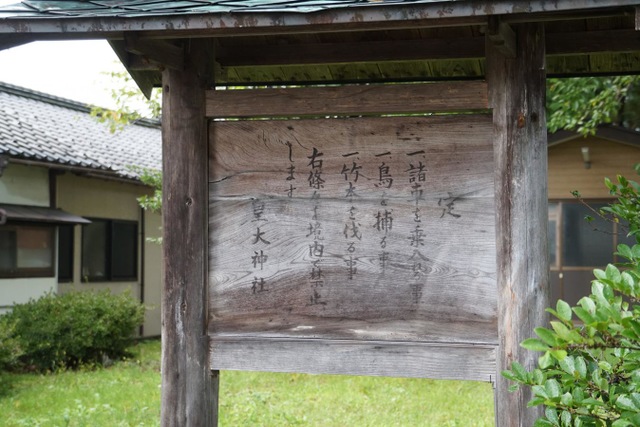 定
一諸車を乗入る事
一鳥を捕る事
一竹木を伐る事
右條々を境内に禁止
します
皇大神社